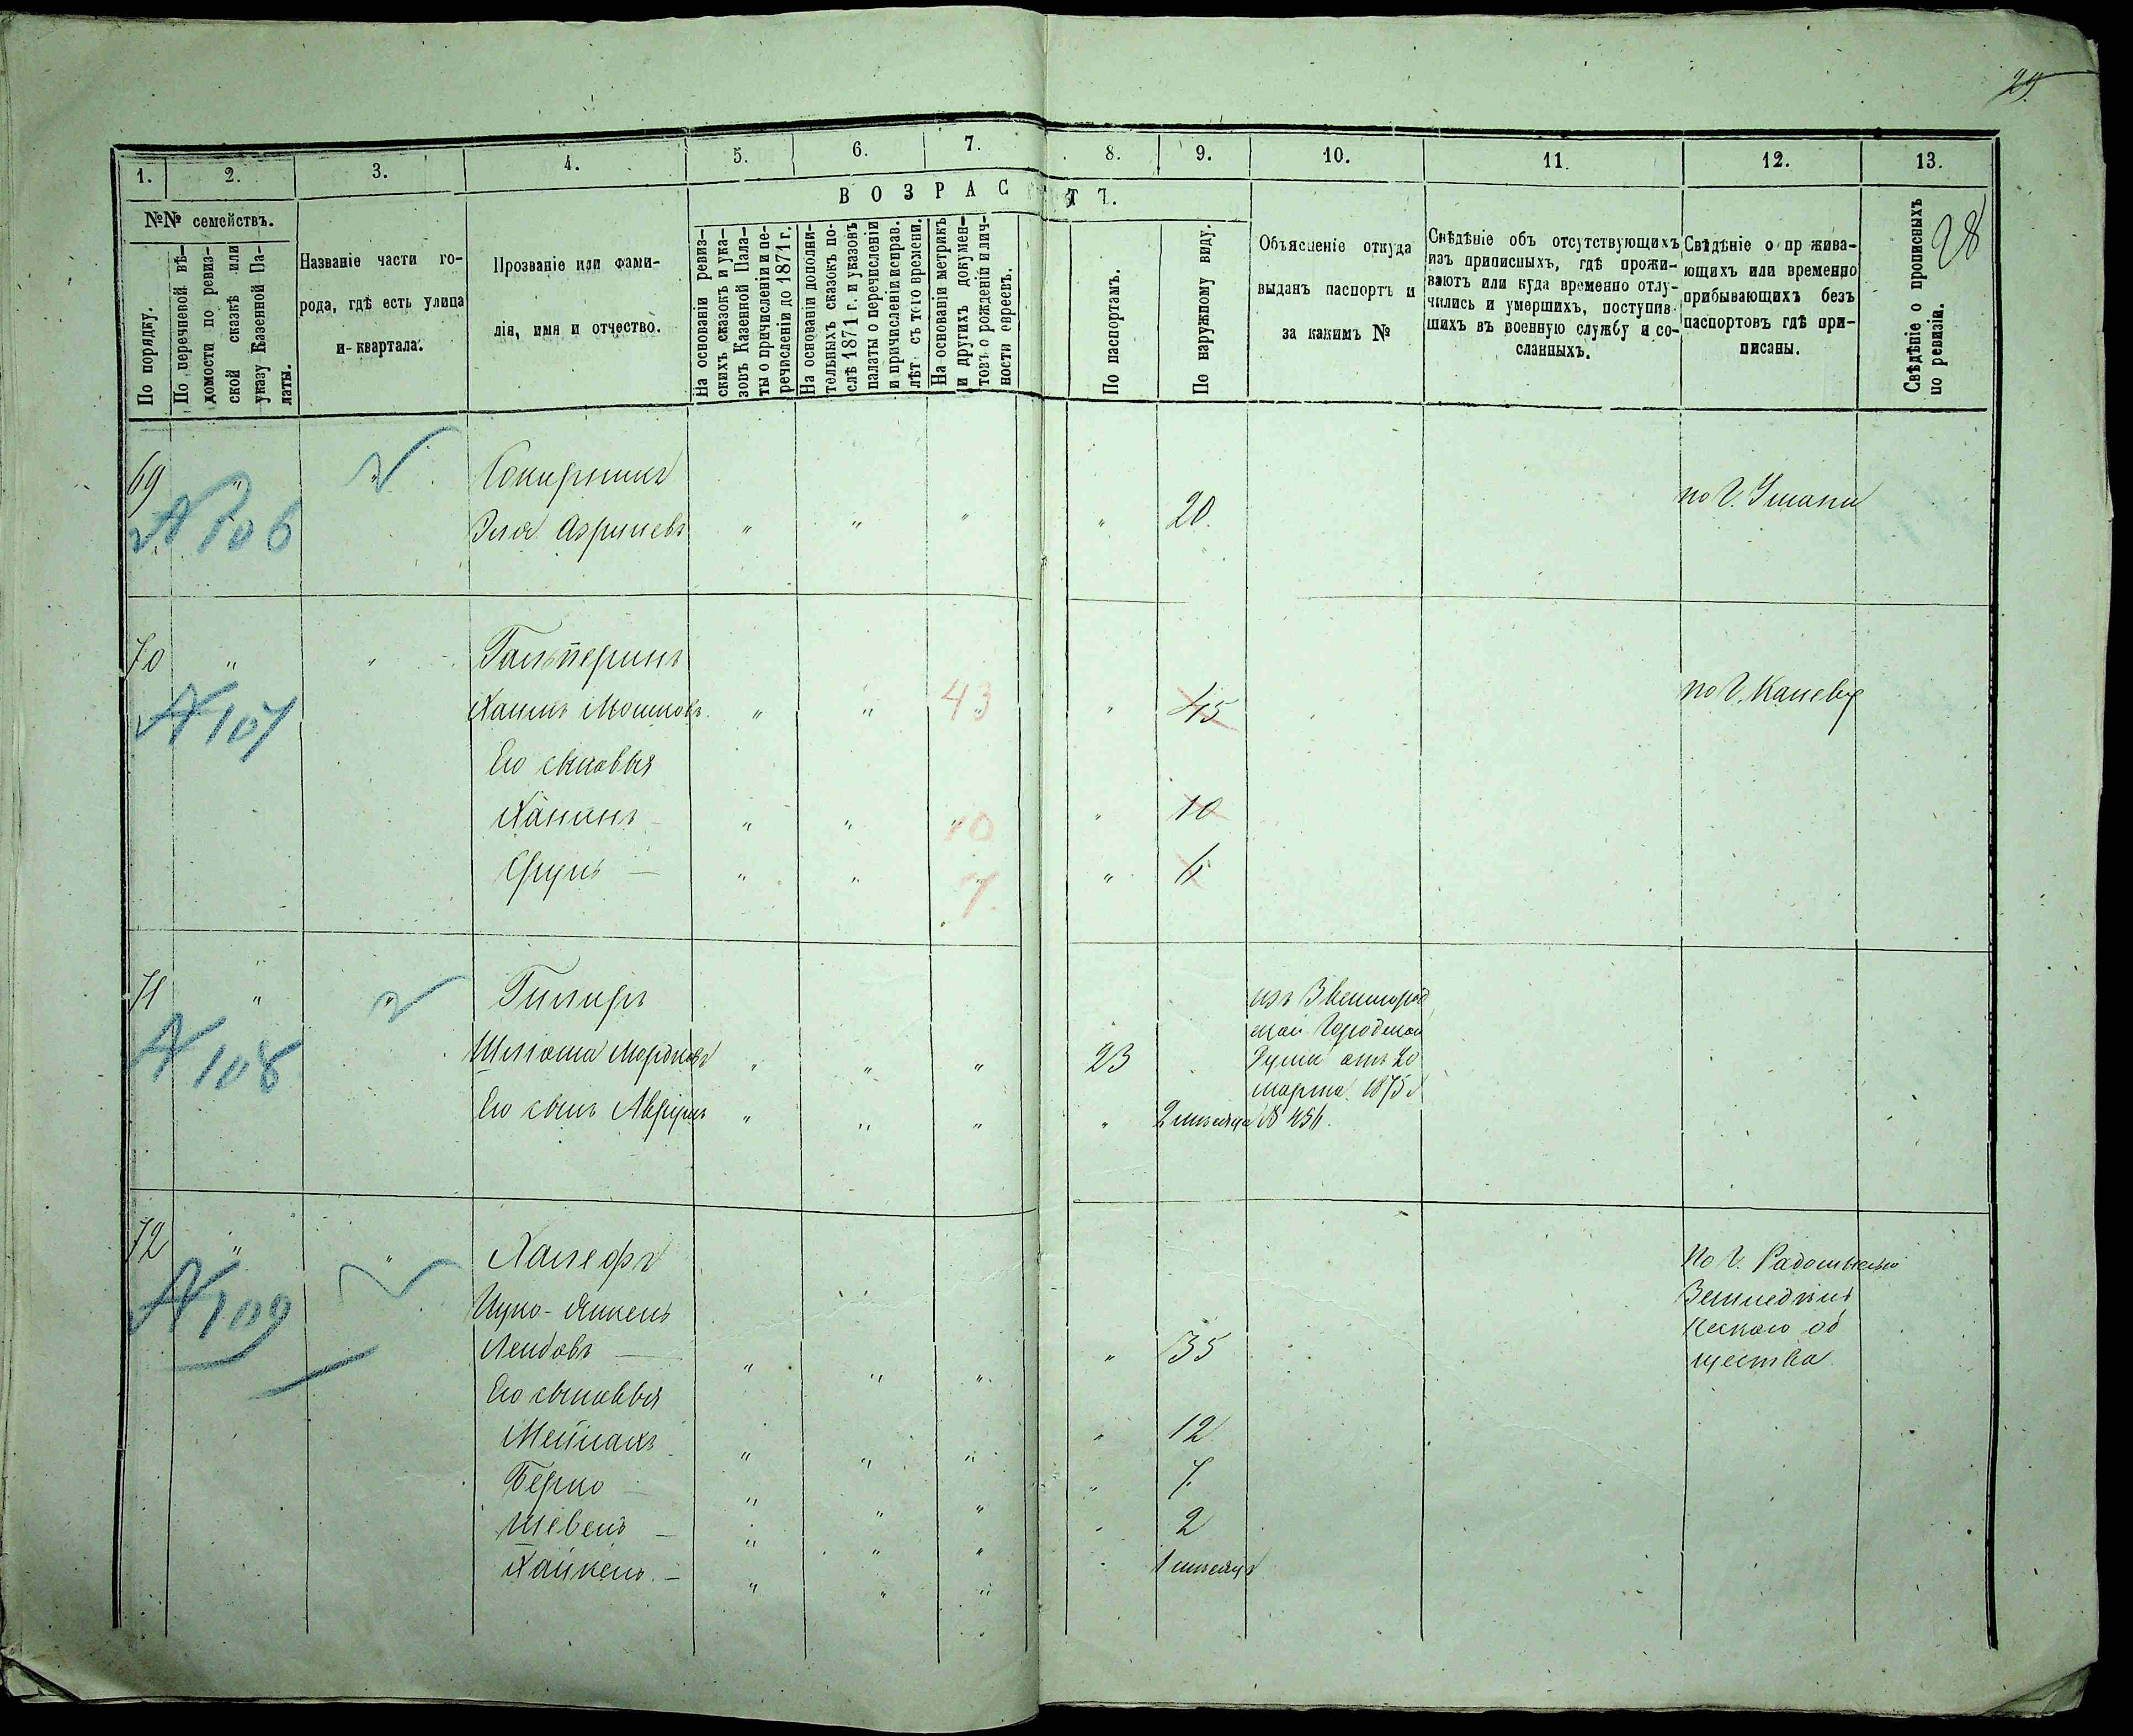 29
28
1. 2. 3. 4. 5. 6. 7. 8. 9. 10. 11. 12. 13.
ВОЗРАСТЪ.
№№ семействъ.
По порядку.
По перечневой вѣ-
домости по ревиз-
ской сказкѣ или
указу Казенной Па-
латы.
Названіе части го-
рода, гдѣ есть улица
и квартала.
Прозваніе или фами-
лія, имя и отчество.
На основаніи ревиз-
скихъ сказокъ и ука-
зовъ Казенной Пала-
ты о причисленіи и пе-
речисленіи до 1871 г.
На основаніи дополни-
тельныхъ сказокъ по-
слѣ 1871 г. и указовъ
палаты о перечисленіи
и причисленіи исправ.
лѣт съ того времени.
На основаніи метрикъ
и другихъ докумен-
товъ о рожденіи и лич-
ности евреевъ.
По паспортамъ.
По наружному виду.
Объясненіе откуда
выданъ паспортъ и
за какимъ №
Свѣдѣніе объ отсутствующихъ
изъ приписныхъ, гдѣ прожи-
ваютъ или куда временно отлу-
чились и умершихъ, поступив-
шихъ въ военную службу и со-
сланныхъ.
Свѣдѣніе о прожива-
ющихъ или временно
прибывающихъ безъ
паспортовъ гдѣ при-
писаны.
Свѣдѣніе о прописныхъ
по ревизіи.
69 " " по Г. Умани
№ 106
" " " " 20.
70 " " Гальперинъ по Г. Каневу
№ 107 Хаимъ Мошковъ " " 43 " 45
Его сыновья
" " 10 " 10
Сруль " " 7 " 6
71 " " изъ Звенигород
ской Городской
№ 108 Мордковъ " " " 23 Думы отъ 20
марта 1875 г
Его сынъ " " " " 2 мѣсяца № 456.
72 " " Халефъ По г. Радомыслю
№ 109 Ицко-Янкель
Лейбовъ " " " " 35 общества
Его сыновья
" " " " 12
Берко " " " " 7
" " " " 2
" " " " 1 мѣсяцъ